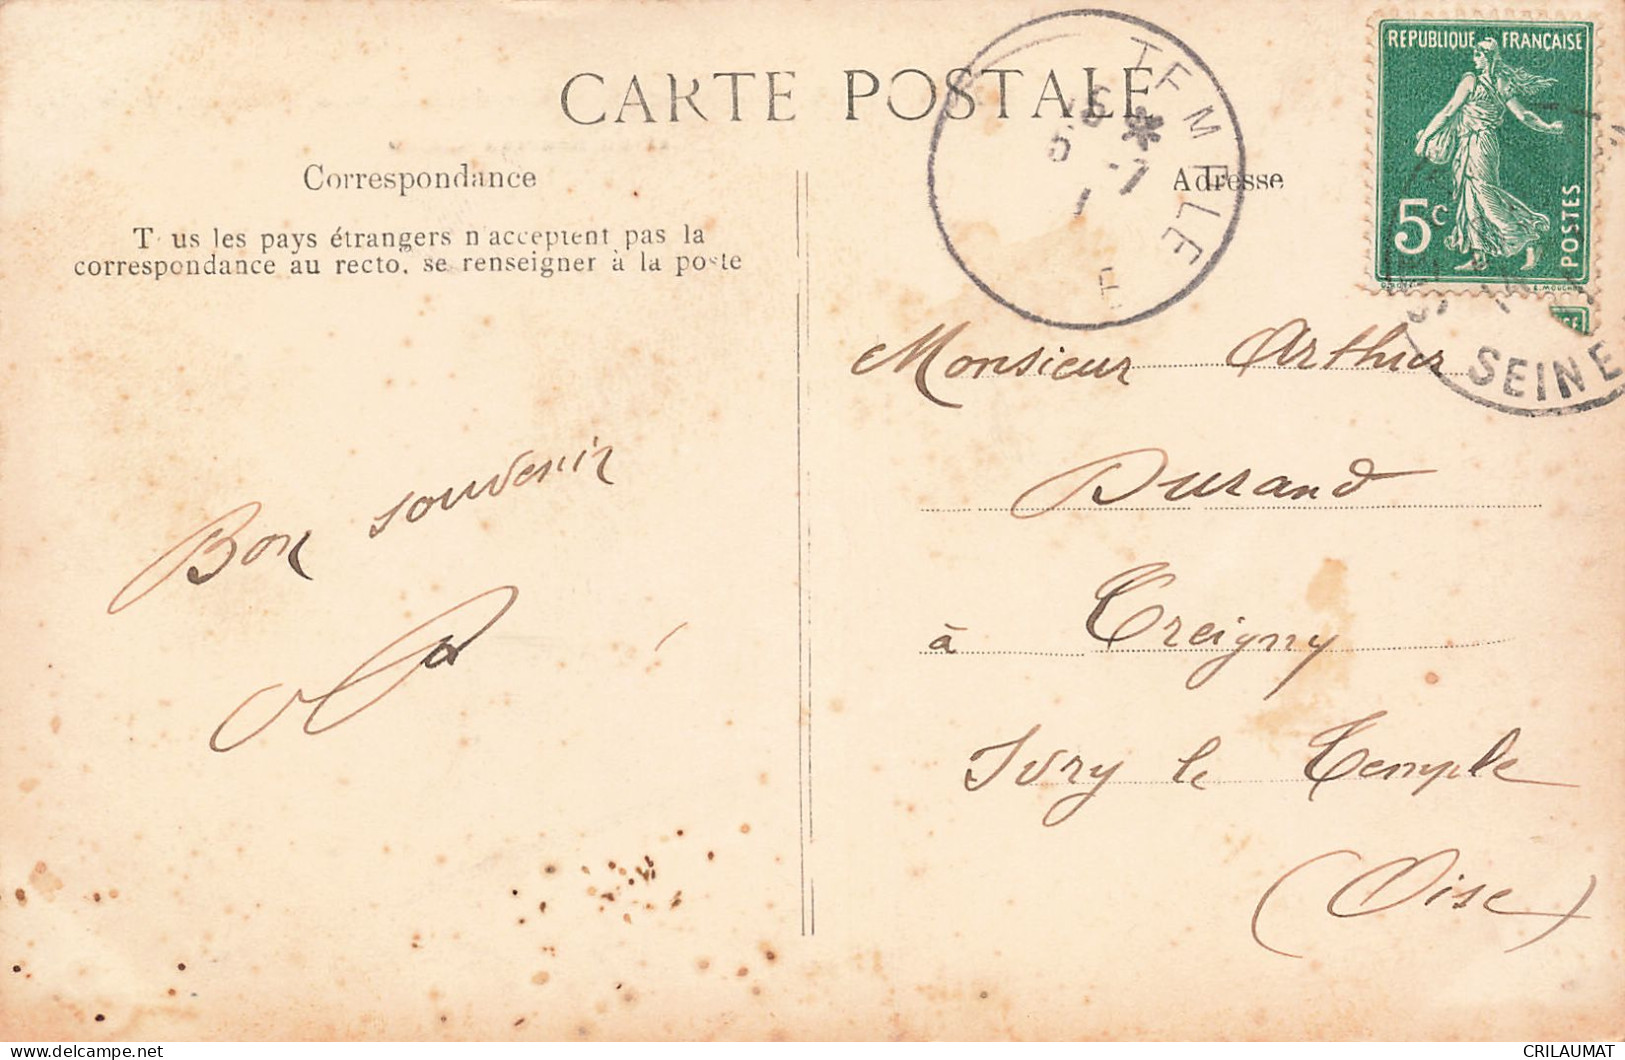 CARTE POSTALE
Correspondance
T us les pays étrangers n'acceptent pas la
correspondance au recto, se renseigner à la poste
Bon souvenir
Adresse
TEMPLE
REPUBLIQUE FRANÇAISE
5c
POSTES
SEINE
Monsieur Arthur
Durand
à Treigny
Ivry le Temple
(Oise)
CRILAUMAT